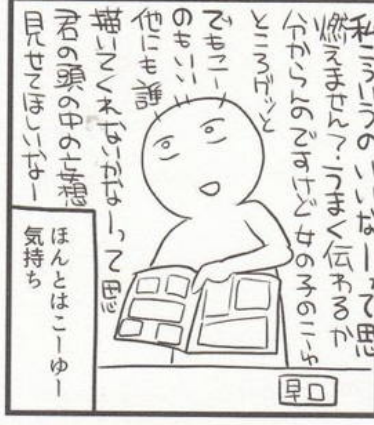 私こういうのいいなーって思
燃えません？うまく伝わるか
分からんのですけど女の子のこーゆ
ところグッと
でもこー
のもいい
他にも誰
描いてくれないかなーって思
君の頭の中の妄想
見せてほしいなー
早口
ほんとはこーゆー
気持ち